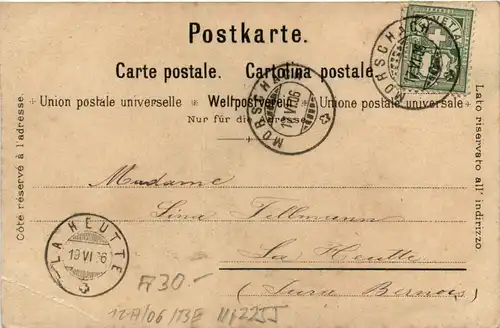 Postkarte.
Carte postale. Cartolina postale.
Union postale universelle * Weltpostverein * Unione postale universale
Nur für die Adresse.
Côté réservé à l'adresse.
Lato riservato all' indirizzo.
HELVETIA
MORSCHACH
MORSCHACH
19 VI 06
Madame
Lina Tillmann
La Heutte
(Jura Bernois)
LA HEUTTE
19 VI 06
30.-